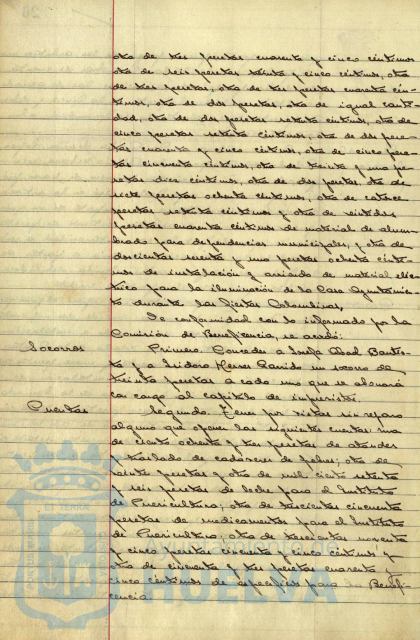 otra de tres pesetas cuarenta y cinco céntimos
otra de seis pesetas treinta y cinco céntimos, otra
de tres pesetas, otra de tres pesetas cuarenta cén-
timos, otra de dos pesetas, otra de igual canti-
dad, otra de dos pesetas setenta céntimos, otra de
cinco pesetas setenta céntimos, otra de dos pese-
tas cuarenta y cinco céntimos, otra de cinco pese-
tas cincuenta céntimos, otra de treinta y una pe-
setas diez céntimos, otra de dos pesetas, otra de
siete pesetas ochenta céntimos, otra de catorce
pesetas setenta céntimos y otra de veintidos
pesetas cuarenta céntimos de material de alum-
brado para dependencias municipales, y otra de
doscientas sesenta y una pesetas ochenta cénti-
mos de instalación y arriendo de material eléc-
trico para la iluminación de la Casa Ayuntamien-
to durante las fiestas Colombinas,
De conformidad con lo informado por la
Comisión de Beneficencia, se acordó:
Socorros
Primero. Conceder a Abad
y a Isidoro Garrido un socorro de
treinta pesetas a cada uno que se abonará
con cargo al capítulo de imprevistos.
Cuentas
Segundo. Tener por vistas sin reparo
alguno que oponer las siguientes cuentas: una
de ciento ochenta y tres pesetas de ataudes
y traslado de cadáveres de pobres; otra de
pesetas y otra de mil ciento setenta
y seis pesetas de leche para el Instituto
de Puericultura; otra de trescientas cincuenta
pesetas de medicamentos para el Instituto
de Puericultura; otra de trescientas noventa
y cinco pesetas cincuenta y cinco céntimos y
otra de cincuenta y tres pesetas cuarenta y
cinco céntimos de específicos para Benefi-
cencia.
Ayuntamiento de
HUELVA